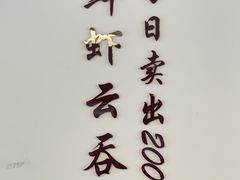 虾云吞
日卖出200